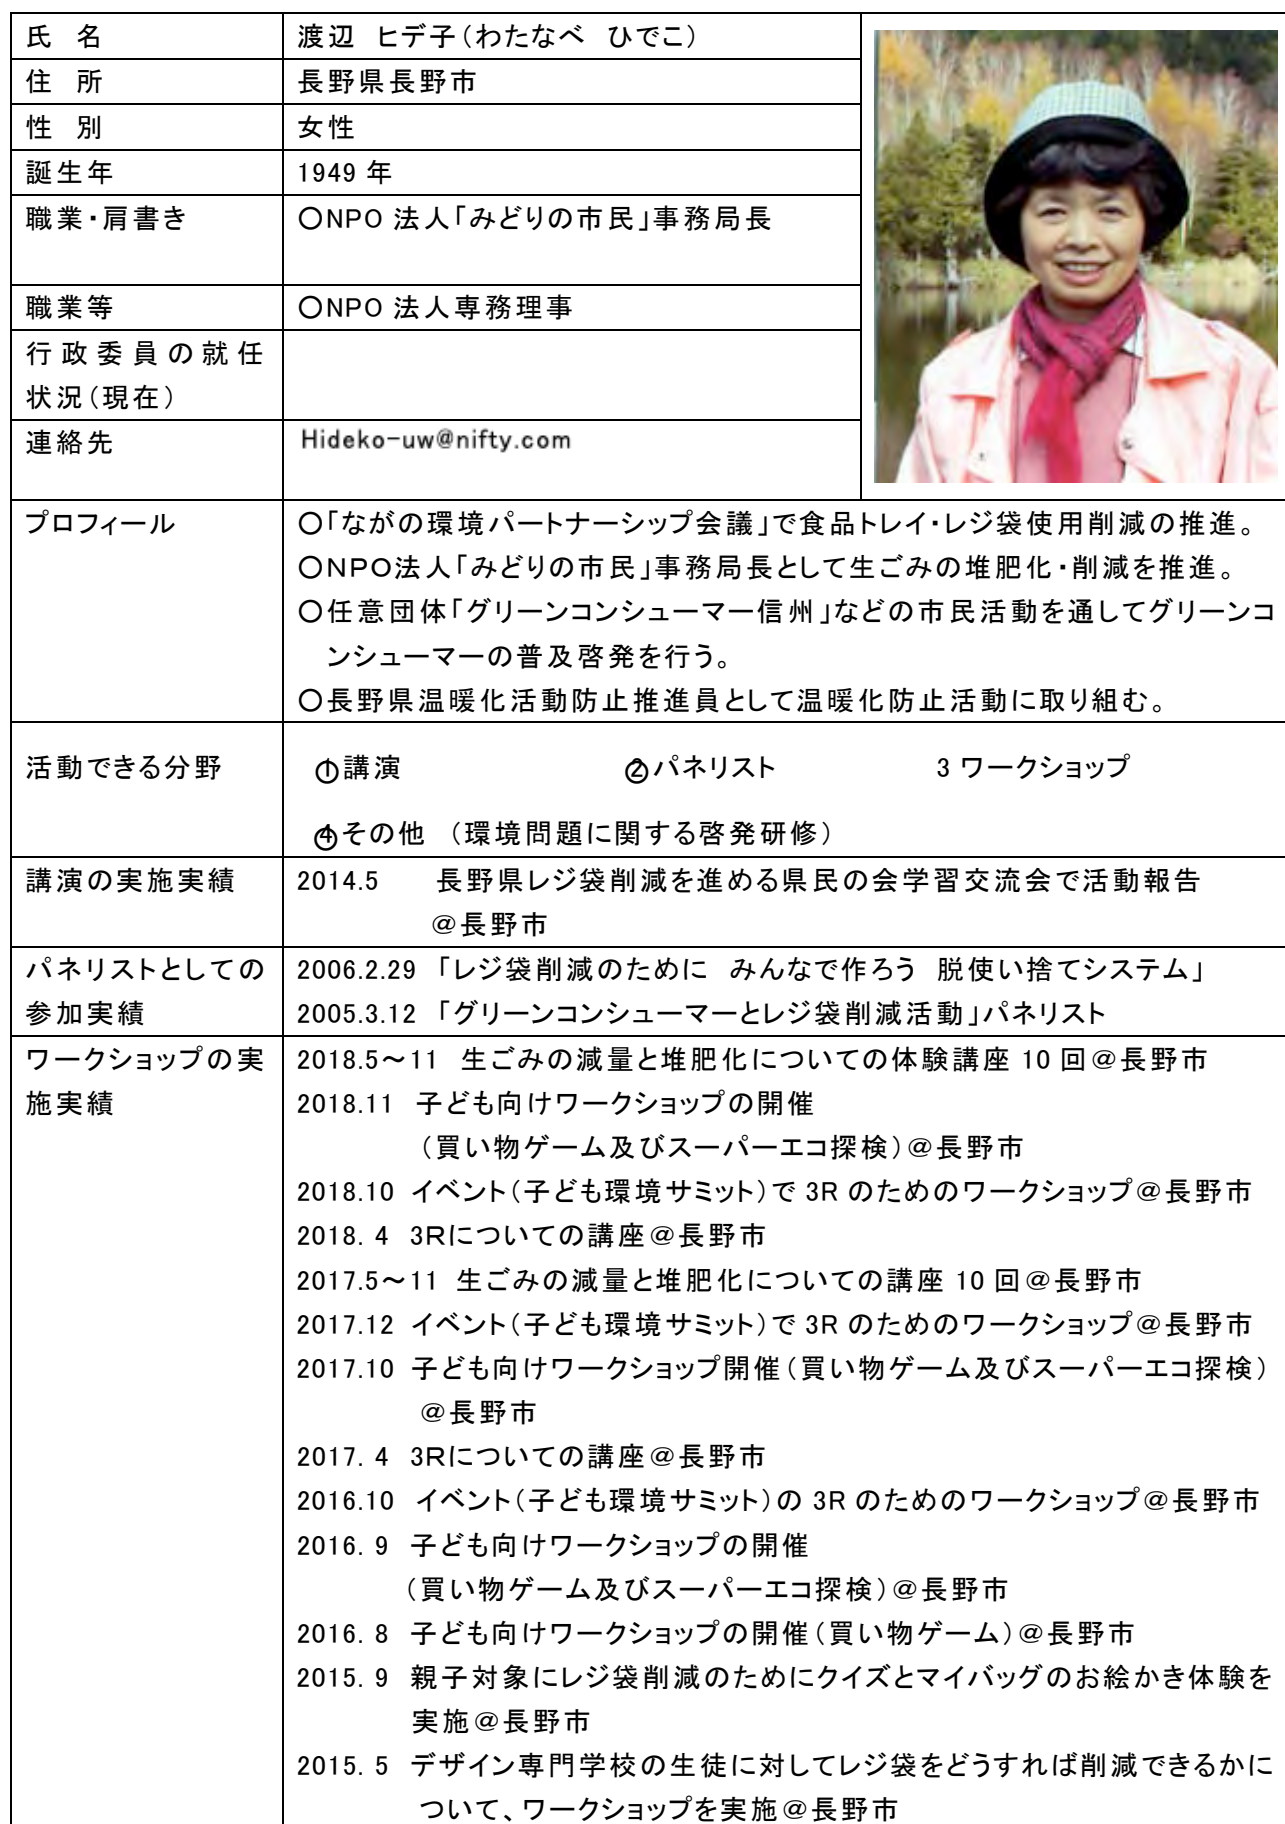 氏 名 渡辺 ヒデ子(わたなべ ひでこ)
住 所 長野県長野市
性 別 女性
誕生年 1949 年
職業・肩書き 〇NPO 法人「みどりの市民」事務局長
職業等 〇NPO 法人専務理事
行政委員の就任
状況(現在)
連絡先 Hideko-uw@nifty.com
プロフィール 〇「ながの環境パートナーシップ会議」で食品トレイ・レジ袋使用削減の推進。
〇NPO法人「みどりの市民」事務局長として生ごみの堆肥化・削減を推進。
〇任意団体「グリーンコンシューマー信州」などの市民活動を通してグリーンコ
ンシューマーの普及啓発を行う。
〇長野県温暖化活動防止推進員として温暖化防止活動に取り組む。
活動できる分野 ①講演 ②パネリスト 3 ワークショップ
④その他 (環境問題に関する啓発研修)
講演の実施実績 2014.5 長野県レジ袋削減を進める県民の会学習交流会で活動報告
@長野市
パネリストとしての 2006.2.29 「レジ袋削減のために みんなで作ろう 脱使い捨てシステム」
参加実績 2005.3.12 「グリーンコンシューマーとレジ袋削減活動」パネリスト
ワークショップの実 2018.5~11 生ごみの減量と堆肥化についての体験講座 10 回@長野市
施実績 2018.11 子ども向けワークショップの開催
(買い物ゲーム及びスーパーエコ探検)@長野市
2018.10 イベント(子ども環境サミット)で 3R のためのワークショップ@長野市
2018. 4 3Rについての講座@長野市
2017.5~11 生ごみの減量と堆肥化についての講座 10 回@長野市
2017.12 イベント(子ども環境サミット)で 3R のためのワークショップ@長野市
2017.10 子ども向けワークショップ開催(買い物ゲーム及びスーパーエコ探検)
@長野市
2017. 4 3Rについての講座@長野市
2016.10 イベント(子ども環境サミット)の 3R のためのワークショップ@長野市
2016. 9 子ども向けワークショップの開催
(買い物ゲーム及びスーパーエコ探検)@長野市
2016. 8 子ども向けワークショップの開催(買い物ゲーム)@長野市
2015. 9 親子対象にレジ袋削減のためにクイズとマイバッグのお絵かき体験を
実施@長野市
2015. 5 デザイン専門学校の生徒に対してレジ袋をどうすれば削減できるかに
ついて、ワークショップを実施@長野市